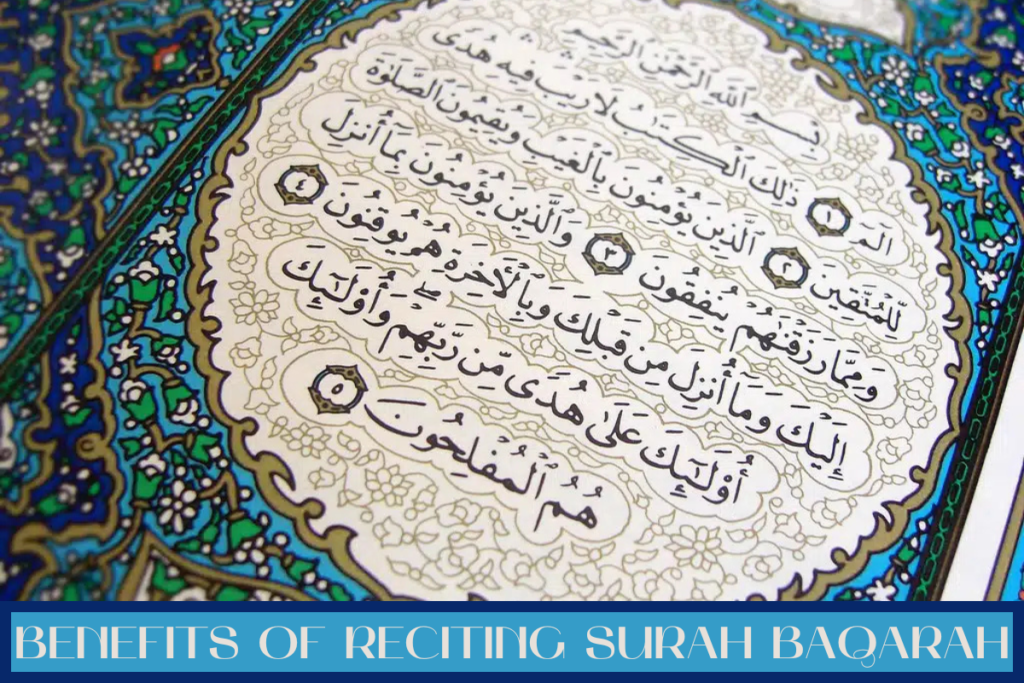 بِسْمِ ٱللَّهِ ٱلرَّحْمَٰنِ ٱلرَّحِيمِ
الٓمٓ ١ ذَٰلِكَ ٱلْكِتَٰبُ لَا رَيْبَ فِيهِ هُدًى
لِّلْمُتَّقِينَ ٢ ٱلَّذِينَ يُؤْمِنُونَ بِٱلْغَيْبِ وَيُقِيمُونَ ٱلصَّلَوٰةَ
وَمِمَّا رَزَقْنَٰهُمْ يُنفِقُونَ ٣ وَٱلَّذِينَ يُؤْمِنُونَ بِمَآ أُنزِلَ
إِلَيْكَ وَمَآ أُنزِلَ مِن قَبْلِكَ وَبِٱلْأَخِرَةِ هُمْ يُوقِنُونَ ٤
أُو۟لَٰٓئِكَ عَلَىٰ هُدًى مِّن رَّبِّهِمْ ۖ وَأُو۟لَٰٓئِكَ
هُمُ ٱلْمُفْلِحُونَ ٥
BENEFITS OF RECITING SURAH BAQARAH